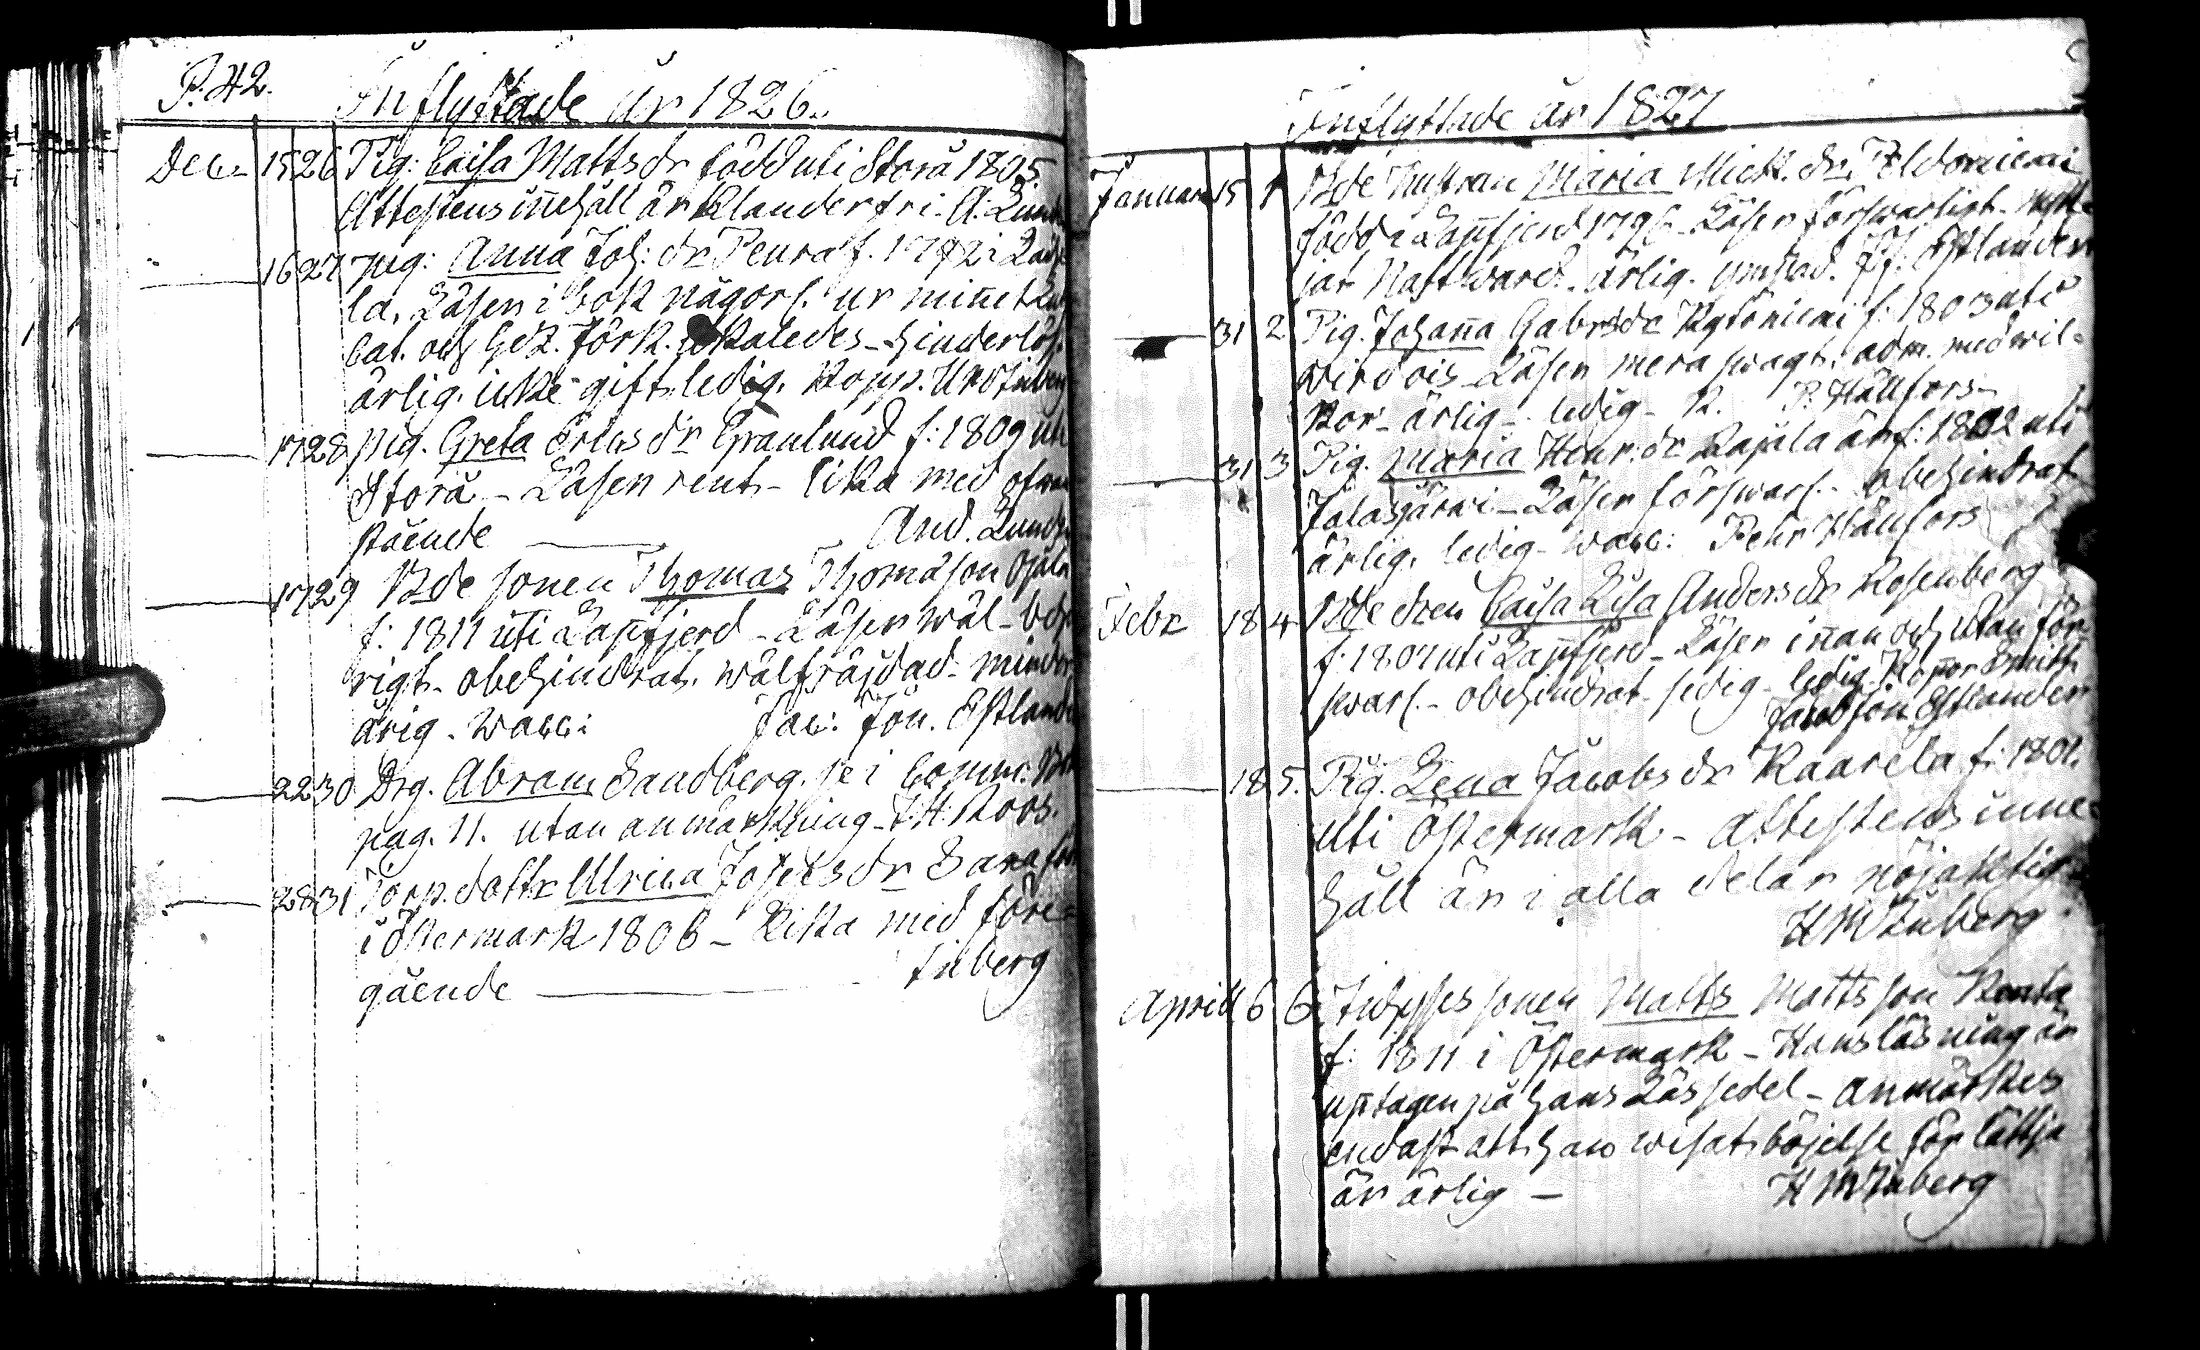 P. 42. Inflyttade År 1826.
Dec. 15 26 Pig: Caisa Mattsdr född uti Storå 1805
Attestens inehåll är Klanderfri. A: Lund
16 27 Pig: Anna Joh: dr Penra f. 1792 i
la, Läser i bok någorl. ur minet
Cat. och Förk. likaledes - hinderlös.
ärlig, icke gift, ledig. Kopp.
17 28 Pig. Greta Ericsdr Granlund f: 1809 uti
Storå - Läser rent - lika med ofvan
stående And. Lund
17 29 Bde sonen Thomas Thomason Ojala
f: 1811 uti Lapfjerd - Läser wäl - be
rigt. obehindrat. wälfräjdad - minder
årig. Wacc: Jac: Jon. Estlander
22 30 Drg. Abram Sandberg. se i Comm: B
pag. 11. utan anmärkning - J. H. Roos.
28 31 Torp. dottr Ulrica Josefsdr
i Östermark 1806 - Lika med före=
gående Inberg
Inflyttade år 1827
Januari 15 1 Bde hustrun Maria Mick. dr
född i Lapfjerd 179 - Läser försvarligt. Nytt=
jat Nattward. ärlig. Estlander
31 2 Pig. Johana Gabrsdr f: 1803 uti
Virdois - Läser mera swagt. adm. med wil=
kor - ärlig - ledig - K. P. Hällfors
31 3 Pig. Maria Henr: dr Rajala är f: 1802 uti
Jalasjärwi - Läser försvarl. - obehindrat
ärlig. ledig - wacc: Pehr Hällfors
Febr 18 4 Bde dren Caisa Lisa Andersdr Rosenberg
f: 1807 uti Lapfjerd - Läser inan och utan för=
swarl. - obehindrat - ledig - ledig. Kopor Smitt.
Jacob Jon Estlander
18 5. Pig. Lena Jacobsdr Kaarela f: 1801.
uti Östermark - Attestens inne=
håll är i alla delar nöjaktig
H M Inberg
April 6 6 Inhyses sonen Matts Mattsson Renta
f: 1811 i Östermark - Hans läsning är
uptagen på hans Läs sedel - anmärkes
endast att han wisat böjelse för lättja
är ärlig - H M Inberg